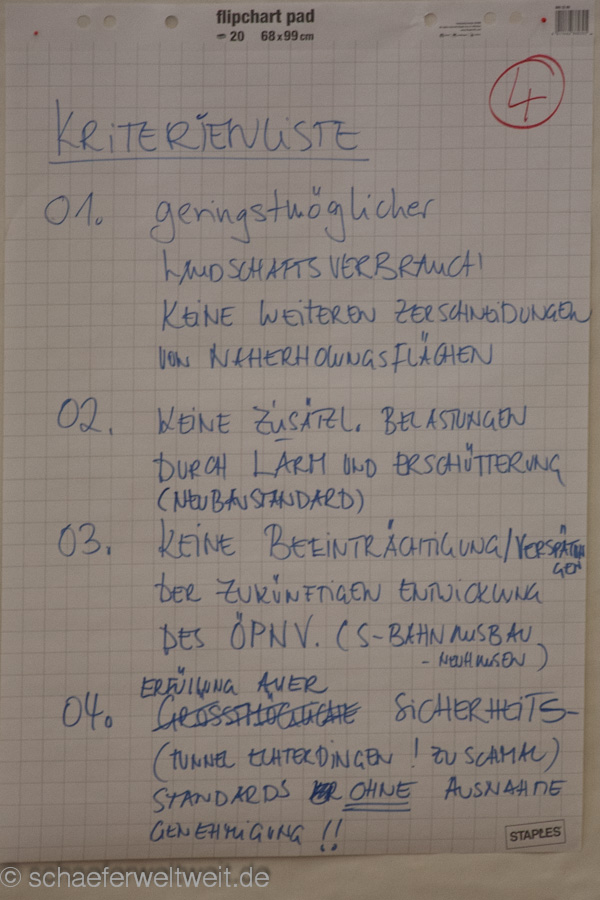 flipchart pad
20 68x99cm
4
KRITERIENLISTE
01. geringstmöglicher
LANDSCHAFTSVERBRAUCH!
KEINE WEITEREN ZERSCHNEIDUNGEN
VON NAHERHOLUNGSFLÄCHEN
02. KEINE ZUSÄTZL. BELASTUNGEN
DURCH LÄRM UND ERSCHÜTTERUNG
(NEUBAUSTANDARD)
03. KEINE BEEINTRÄCHTIGUNG/VERSPÄTUN
GEN
DER ZUKÜNFTIGEN ENTWICKLUNG
DES ÖPNV. (S-BAHNAUSBAU
- NEUHAUSEN)
ERFÜLLUNG ALLER
04. GRÖSSTMÖGLICHE SICHERHEITS-
(TUNNEL ECHTERDINGEN! ZU SCHMAL)
STANDARDS OHNE AUSNAHME
GENEHMIGUNG!!
STAPLES
© schaeferweltweit.de